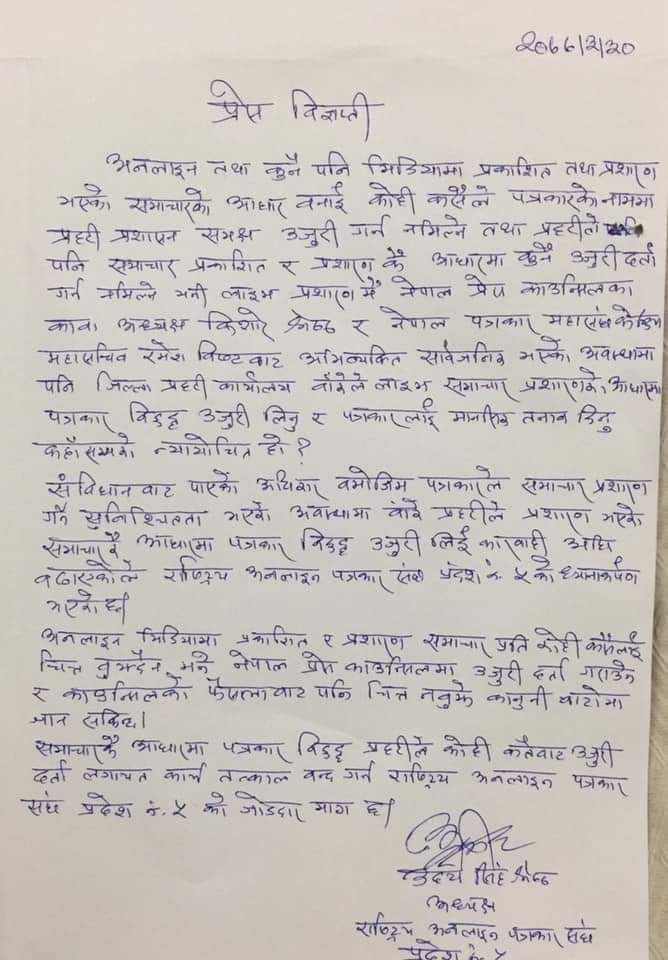 २०७७/२/२०
प्रेस विज्ञप्ती
अनलाइन तथा कुनै पनि मिडियामा प्रकाशित तथा प्रशारण
भएको समाचारको आधार बनाई कोही कसैले पत्रकारको नाममा
प्रहरी प्रशासन समक्ष उजुरी गर्न नमिल्ने तथा प्रहरीले
पनि समाचार प्रकाशित र प्रशारण कै आधारमा कुनै उजुरी दर्ता
गर्न नमिल्ने भनी लाइभ प्रशारण मै नेपाल प्रेस काउन्सिलका
कावा अध्यक्ष किशोर श्रेष्ठ र नेपाल पत्रकार महासंघ केन्द्रिय
महासचिव रमेश विष्टबाट अभिव्यक्ति सार्वजनिक भएको अवस्थामा
पनि जिल्ला प्रहरी कार्यालय बाँकेले लाइभ समाचार प्रशारणको आधारमा
पत्रकार विरुद्द उजुरी लिनु र पत्रकारलाई मानसिक तनाव दिनु
कहाँसम्मको न्यायोचित हो ?
संविधानबाट पाएको अधिकार बमोजिम पत्रकारले समाचार प्रशारण
गर्न सुनिश्चितता भएको अवस्थामा बाँके प्रहरीले प्रशारण भएको
समाचारकै आधारमा पत्रकार विरुद्द उजुरी लिई कारवाही अघि
बढाएकोले राष्ट्रिय अनलाइन पत्रकार संघ प्रदेश नं. ५ को ध्यानाकर्षण
भएको छ।
अनलाइन मिडियामा प्रकाशित र प्रशारण समाचार प्रति कोही कसैलाई
चित्त बुझ्दैन भने नेपाल प्रेस काउन्सिलमा उजुरी दर्ता गराउने
र काउन्सिलको फैसलाबाट पनि चित्त नबुझे कानुनी बाटोमा
जान सकिन्छ।
समाचारकै आधारमा पत्रकार विरुद्द प्रहरीले कोही कतैबाट उजुरी
दर्ता लगायत कार्य तत्काल बन्द गर्न राष्ट्रिय अनलाइन पत्रकार
संघ प्रदेश नं. ५ को जोडदार माग छ।
सिंह श्रेष्ठ
अध्यक्ष
राष्ट्रिय अनलाइन पत्रकार संघ
प्रदेश नं. ५